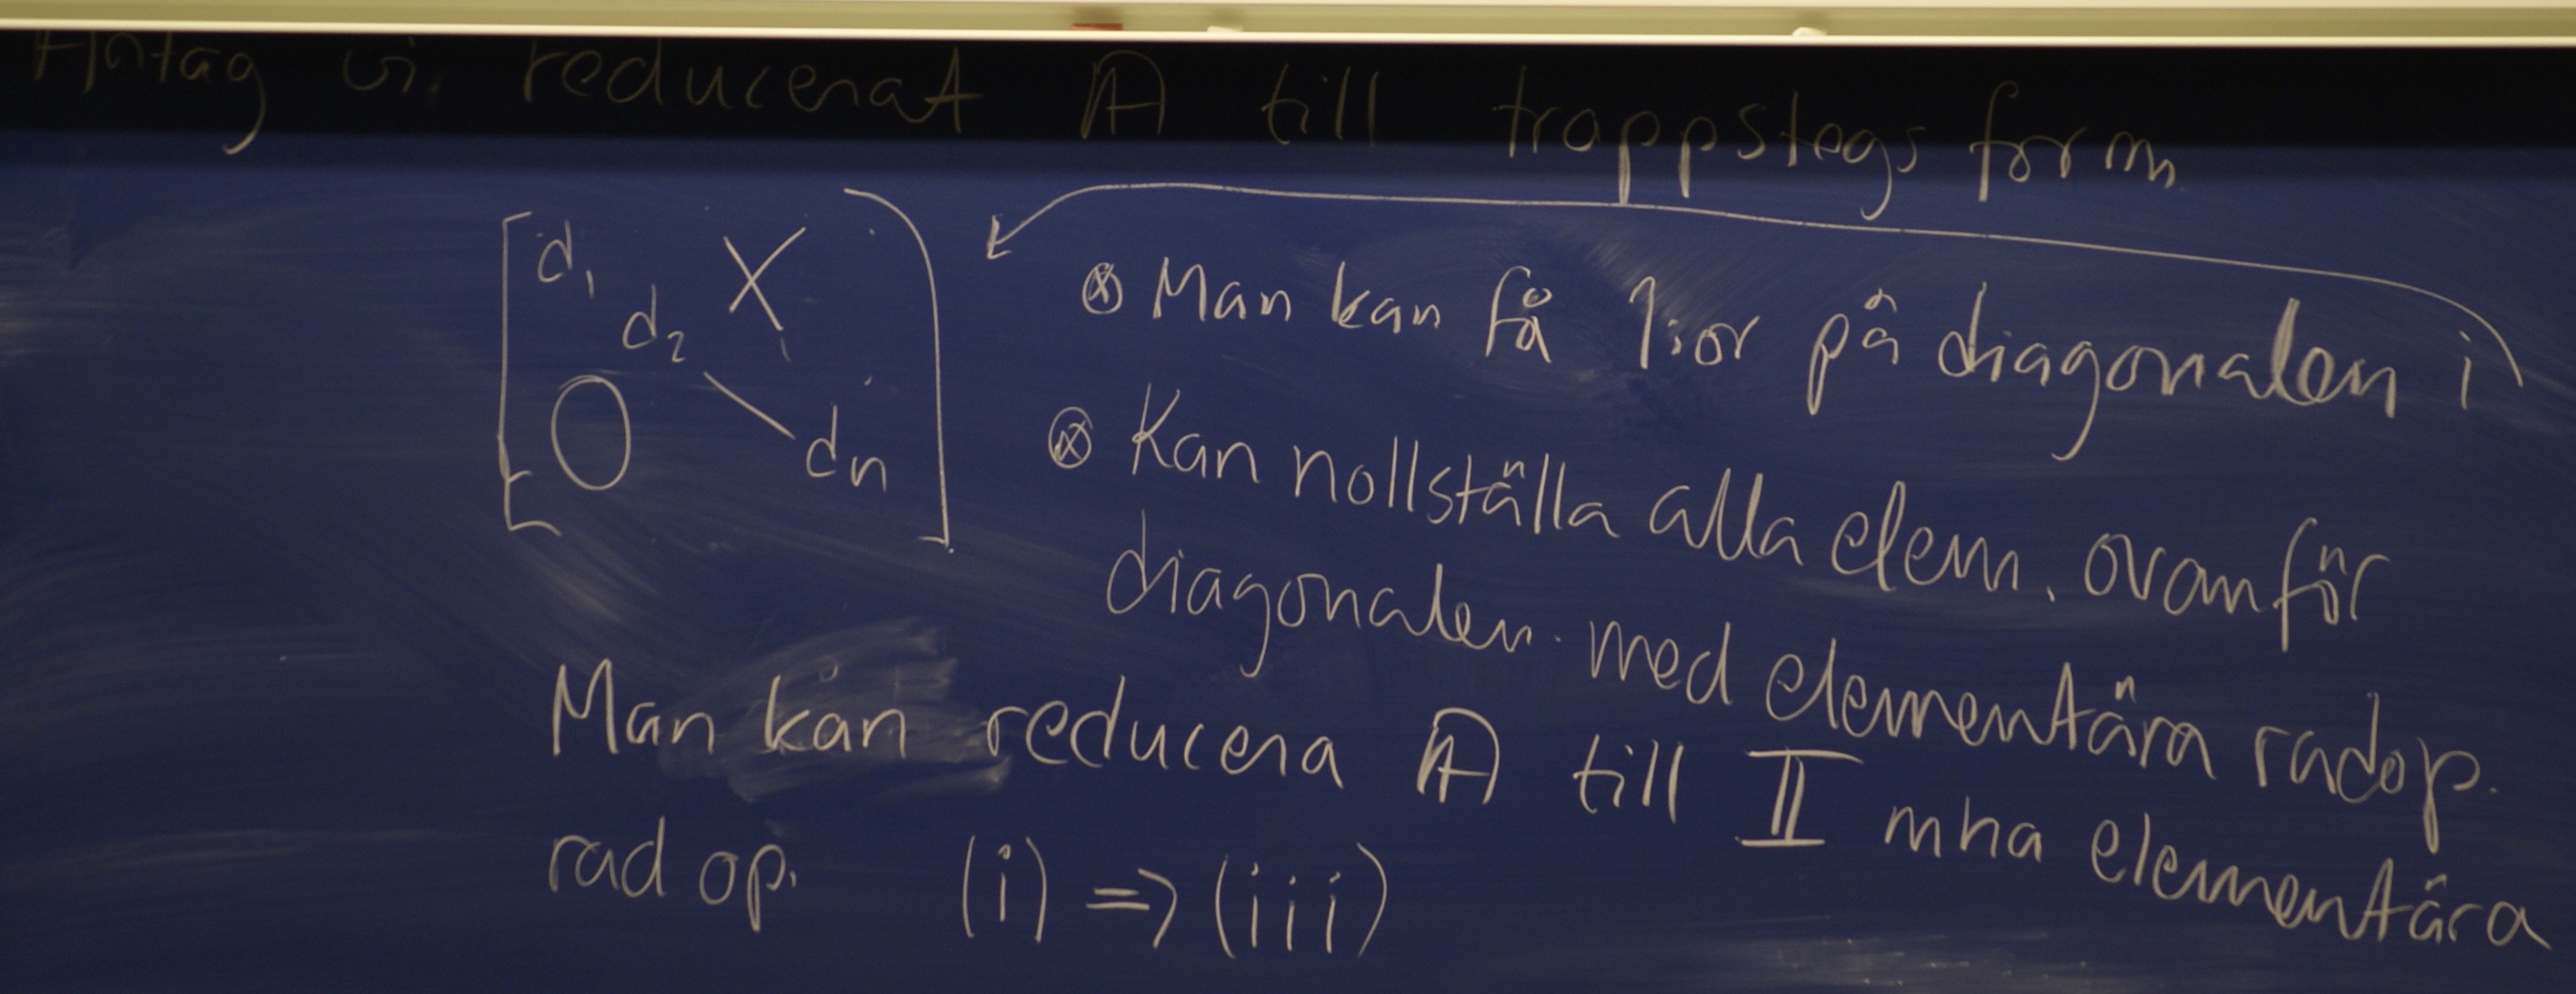 Antag vi reducerat A till trappstegsform
d1 X
d2
O dn
⊗ Man kan få 1:or på diagonalen i
⊗ Kan nollställa alla elem. ovanför
diagonalen med elementära radop.
Man kan reducera A till I mha elementära
rad op. (i) => (iii)